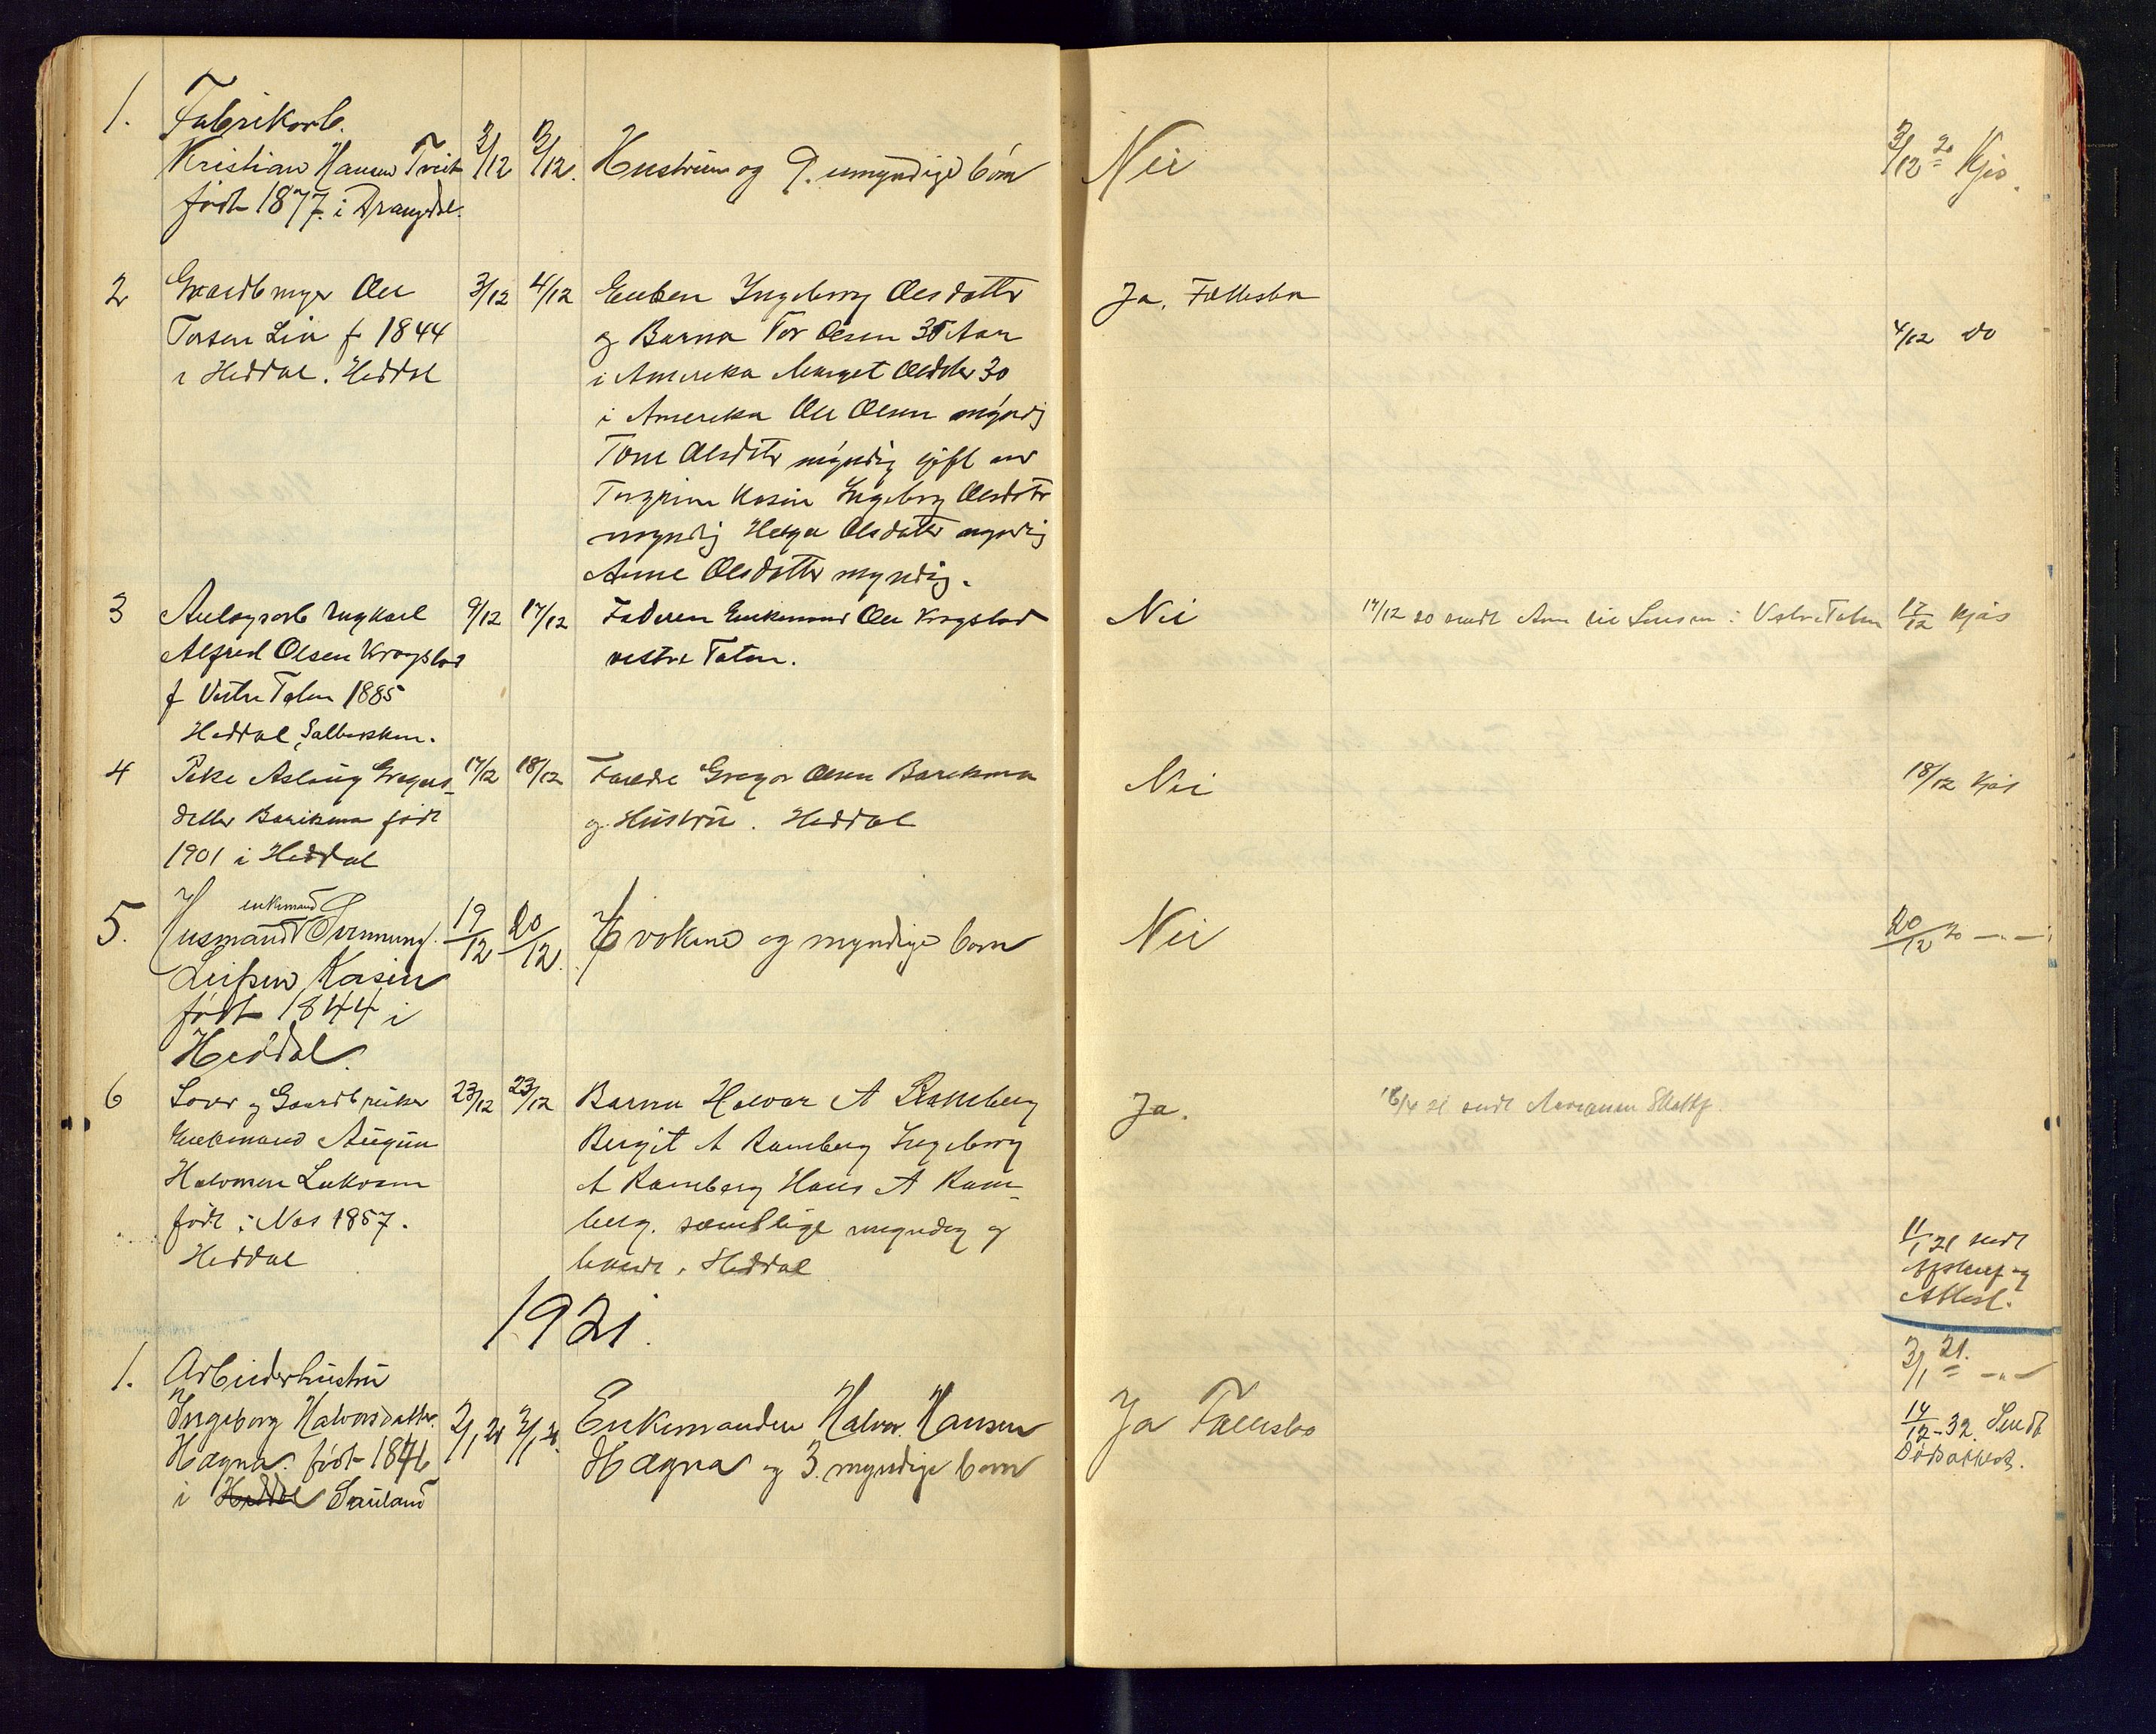 1. Fabrikarb.
Kristian Hansen Tveit 2/12 12/12. Hustruen og 9. umyndige børn Nei 3/12 20 Kjøs.
født 1877 i Drangedal.
2 Gaardbruger Ole 3/12 4/12 Enken Ingeborg Olesdatter Ja. Fællesbo
Torsen Lia f 1844 og Barna Tor Olsen 35 Aar 4/12 do
i Heddal. Heddal i Amerika Marget Olesdtr 30
i Amerika Ole Olsen myndig
Tone Olesdtr myndig gift med
Torgrim Kasin Ingeborg Olesdtr
myndig Helga Olesdatter myndig
Anne Olesdatter myndig.
3 Anlægsarb Ungkarl 9/12 17/12 Faderen Enkemand Ole Kragstad Nei 17/12 20 sendt Anm til Lensm i Vestre Toten 17/12 Kjøs
Alfred Olsen Kragstad vestre Toten.
f Vestre Toten 1885
Heddal,
4 Pike Aslaug Gregars- 17/12 18/12 Foreldre Gregar Olsen Bareksma Nei 18/12 Kjøs
datter Bareksma født og Hustru. Heddal
1901 i Heddal
enkemand
5. Husmand Svennung 19/12 20/12. Hvoksne og myndige børn Nei 20/12 20 -"-
Leifsen Kasin
født 1844 i
Heddal.
6 Gaardbruker 23/12 23/12 Barna Halvor A Ramberg Ja. 18/4 21 sendt
Enkemand Augun Bergit A Ramberg Ingeborg
Halvorsen A Ramberg Hans A Ram-
født i Nes 1857. berg. samtlige myndig og
Heddal Heddal
11/1 21 sendt
Afskrif og
Attest.
1921.
1. Arbeiderhustru 3/1 21. -"-
Ingeborg Halvorsdatter 2/1 21 3/1 21. Enkemanden Halvor Hansen Ja Fællesbo 14/12-32. Sendt
Hagna. født 1846 Hagna og 3. myndige børn Dødsattest.
i Heddal Sauland